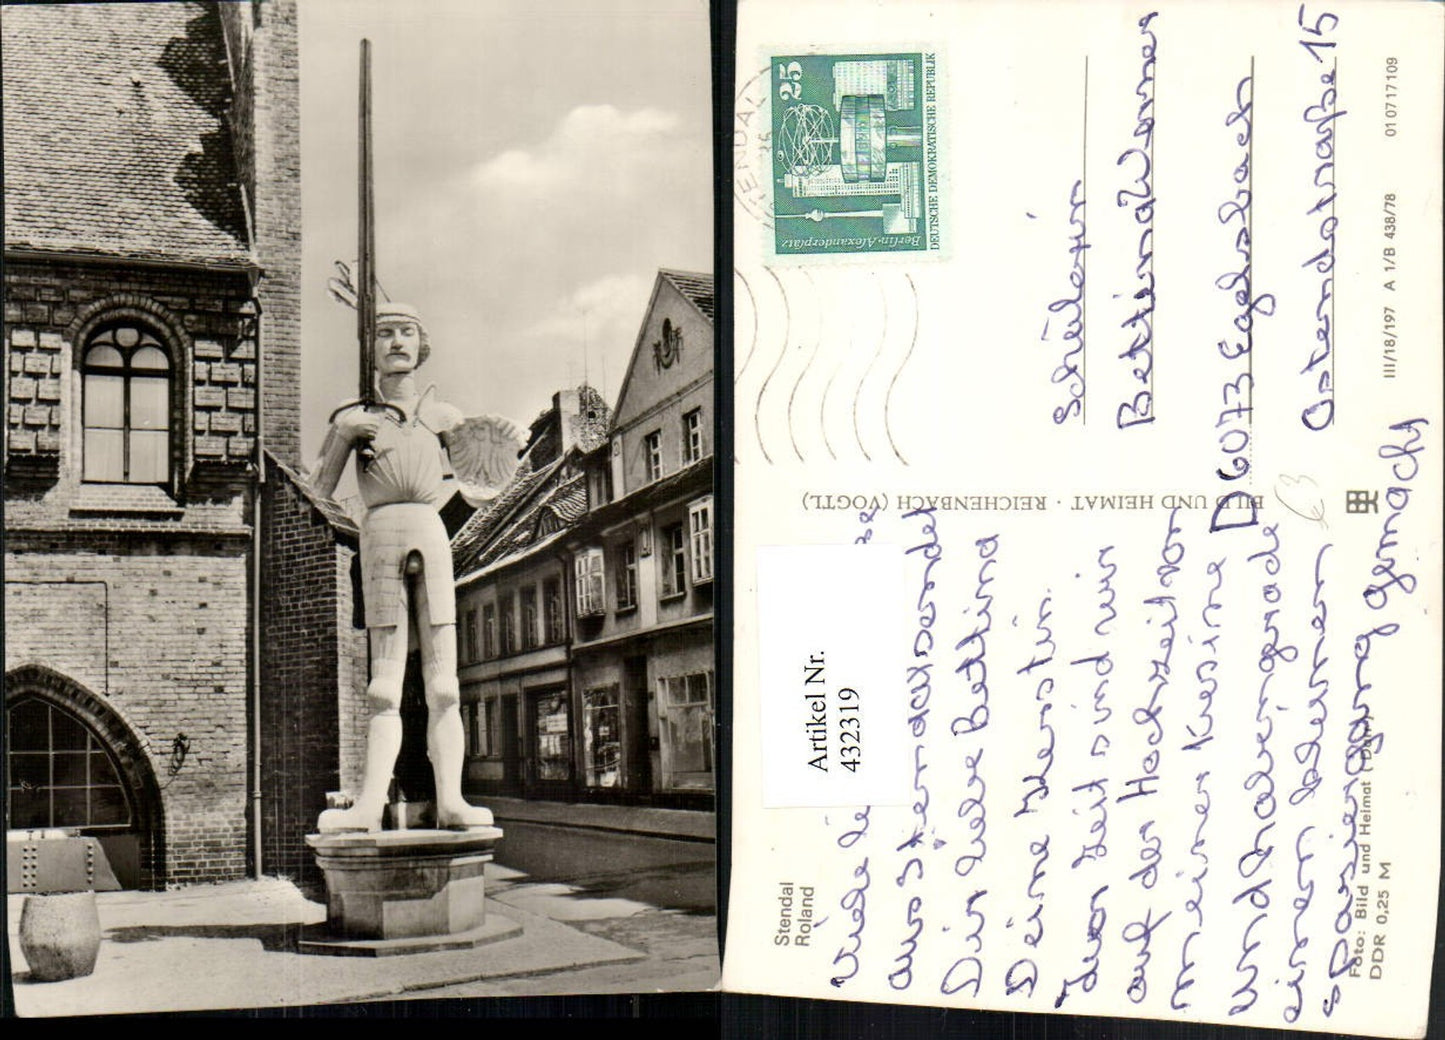 Stendal
Roland
Viele
aus Stendal sendet
Dir liebe Bettina
Deine Kerstin.
Zur Zeit sind wir
auf der Hochzeit von
meiner Kusine
und haben gerade
einen kleinen
Spaziergang gemacht
Artikel Nr.
432319
BILD UND HEIMAT · REICHENBACH (VOGTL)
STENDAL
25
Berlin-Alexanderplatz
DEUTSCHE DEMOKRATISCHE REPUBLIK
Schülerin
Bettina Werner
D 6073 Egelsbach
Ostendstraße 15
€3
III/18/197 A 1/B 438/78 01 07 17 109
Foto: Bild und Heimat
DDR 0,25 M